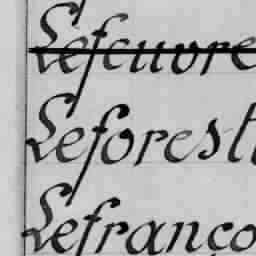 Lefeuvre
Leforesti
Lefranço